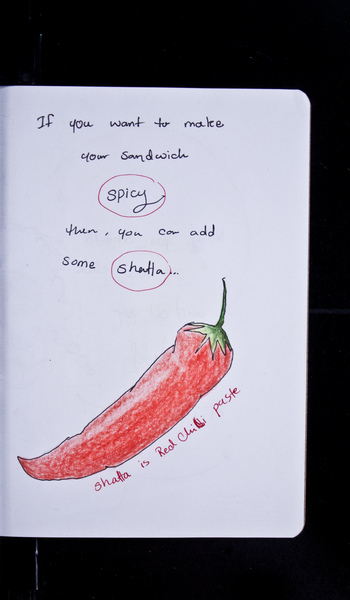 If you want to make
your sandwich
spicy
then, you can add
some shatta...
shatta is Red Chilli paste